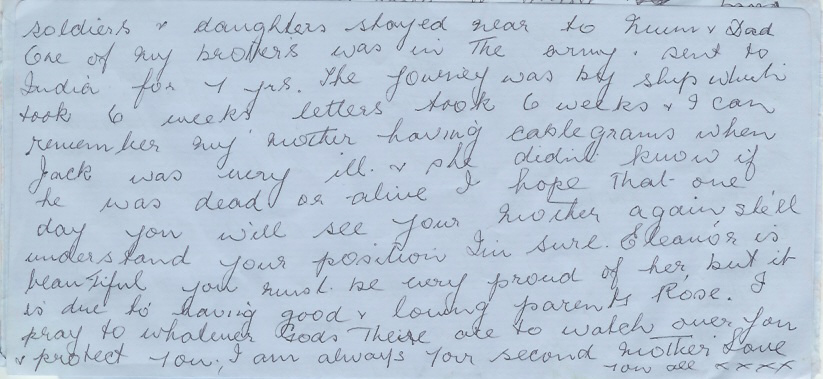 soldiers & daughters stayed near to Mum & Dad
One of my brothers was in The army. sent to
India for 7 yrs. The journey was by ship which
took 6 weeks letters took 6 weeks & I can
remember my mother having cablegrams when
Jack was very ill. & she didnt know if
he was dead or alive I hope That one
day you will see your Mother again She'll
understand your position I'm sure. Eleanor is
beautiful you must be very proud of her but it
is due to having good & loving parents Rose. I
pray to whatever Gods There are to watch over you
& protect you. I am always your second Mother Love
you all xxxx